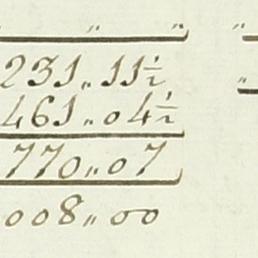 " "
231"11½
461"04½
770"07
008"00